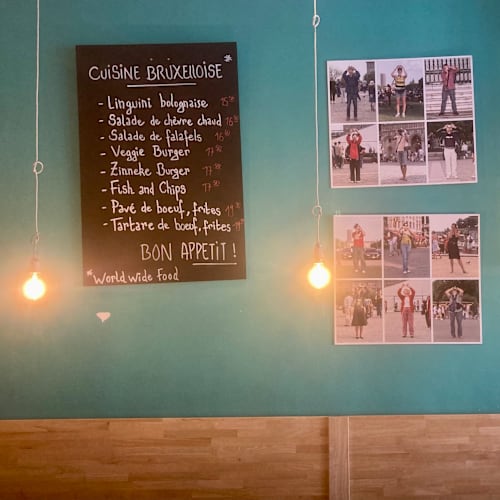 CUISINE BRUXELLOISE *
- Linguini bolognaise 15⁵⁰
- Salade de chèvre chaud 16⁵⁰
- Salade de falafels 16⁵⁰
- Veggie Burger 17⁵⁰
- Zinneke Burger 17⁵⁰
- Fish and Chips 17⁵⁰
- Pavé de boeuf, frites 19⁵⁰
- Tartare de boeuf, frites
BON APPETIT !
* World wide Food